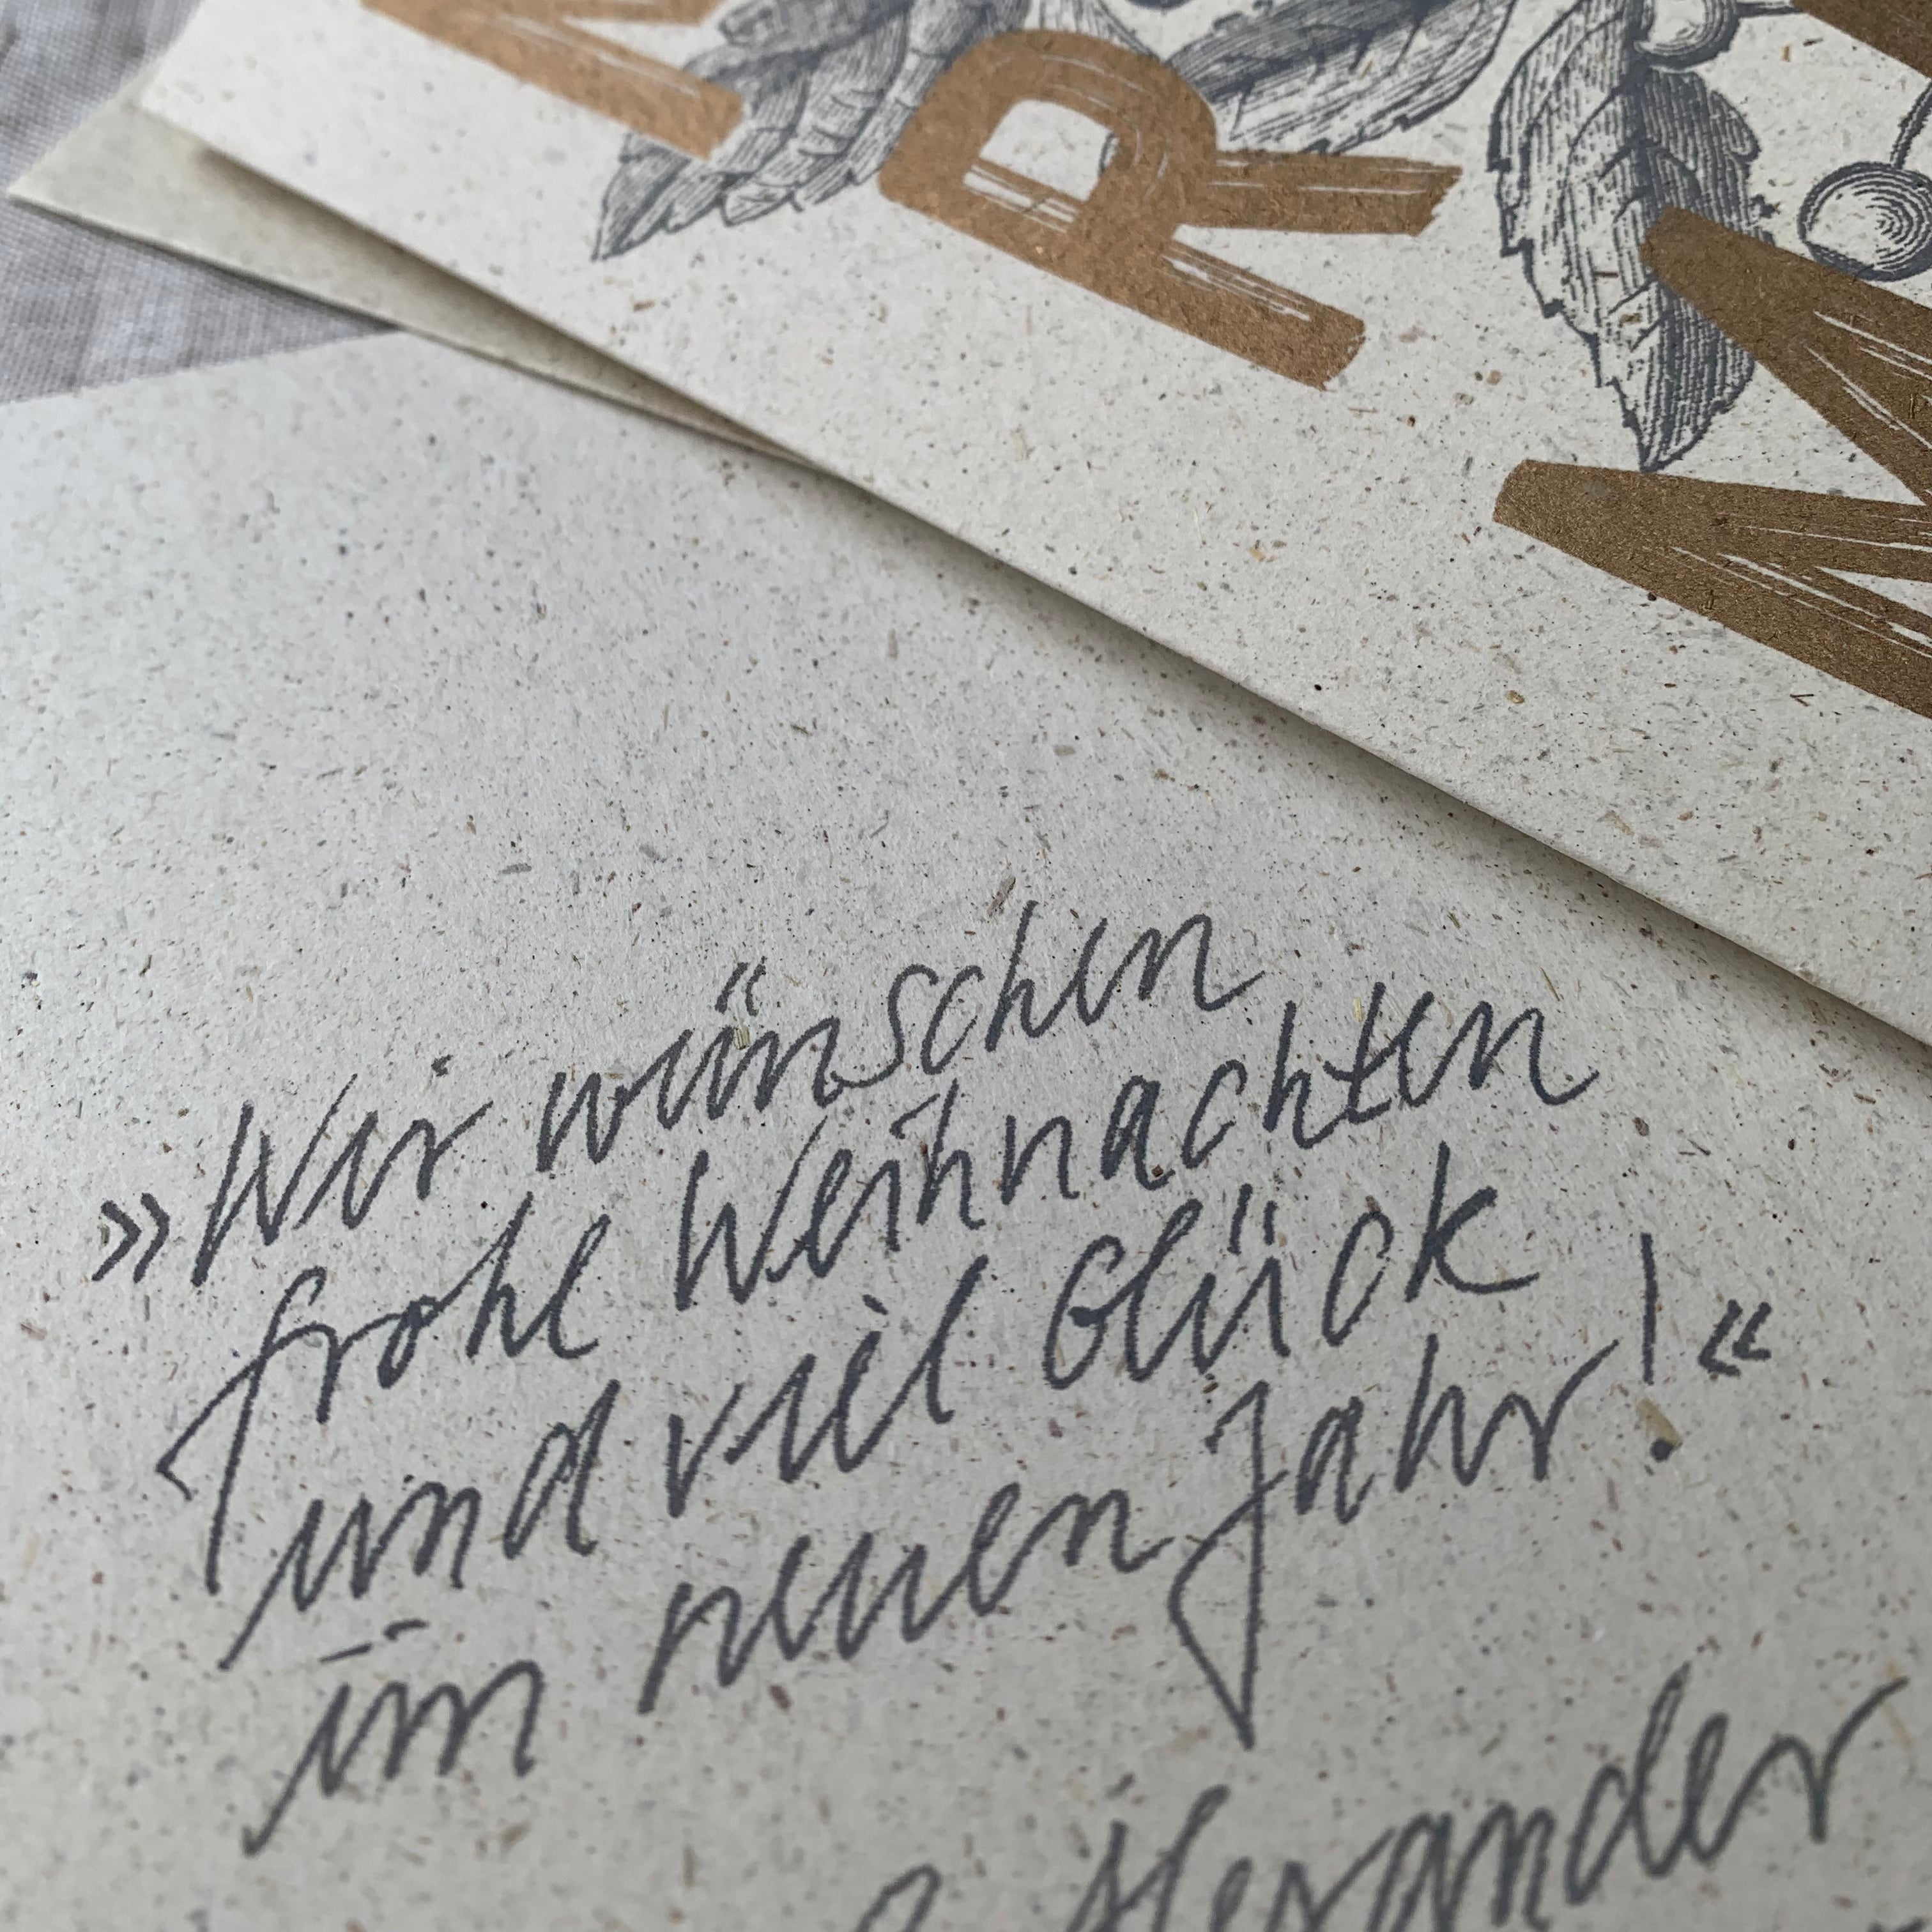 R
»Wir wünschen
frohe Weihnachten
und viel Glück
im neuen Jahr!«
& Alexander